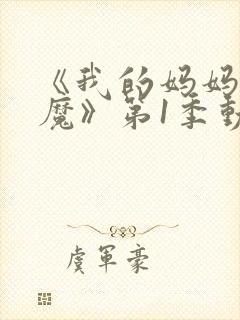 《我的妈妈
魔》第1季動
虞軍豪